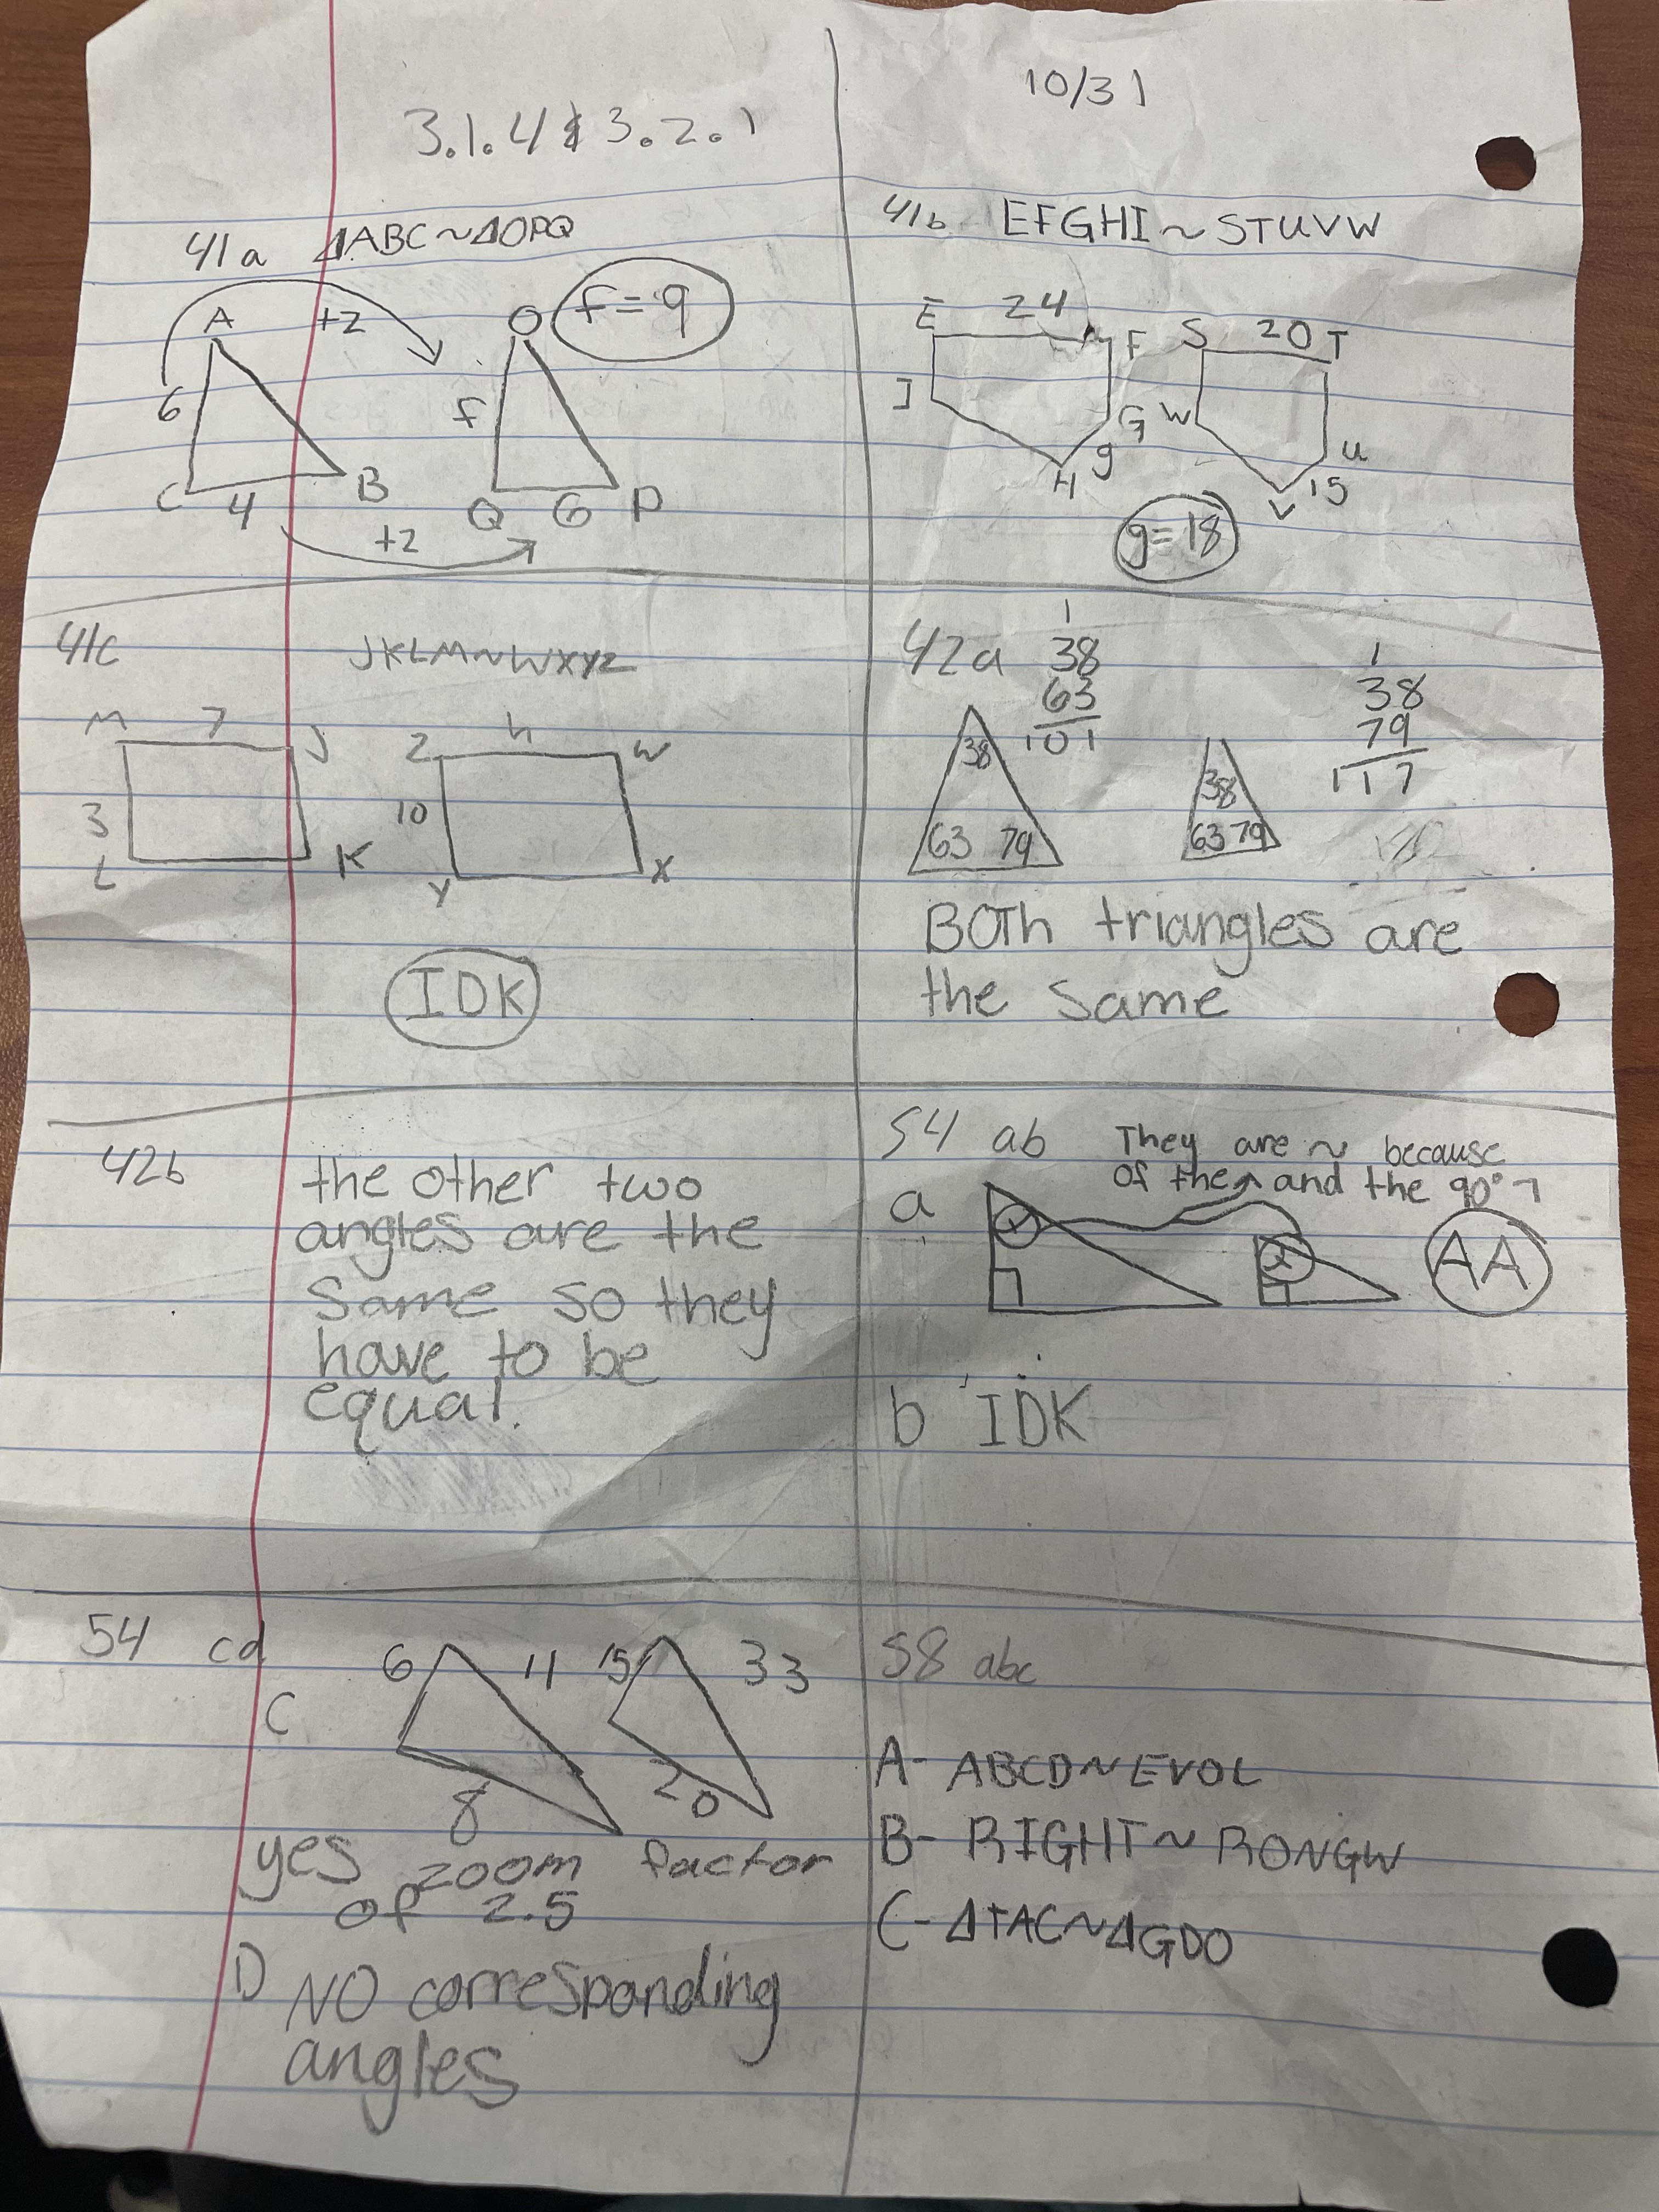 3.1.4 & 3.2.1
10/31
41a ΔABC~ΔOPQ
A +2 O f=9
6 f
C 4 B Q 6 P
+2
41b EFGHI~STUVW
E 24 F S 20 T
I G W U
H g V 15
g=18
41c JKLM~WXYZ
M 7 J Z h W
3 10
L K Y X
IDK
42a
1
38
63
101
1
38
79
117
38 38
63 79 63 79
BOTH triangles are
the same
42b the other two
angles are the
same so they
have to be
equal.
54 ab They are ~ because
of the and the 90°
a AA
b IDK
54 cd
C 6 11 15 33
8 20
yes zoom factor
of 2.5
D NO corresponding
angles
58 abc
A- ABCD~EVOL
B- RIGHT~RONGW
C- ΔTAC~ΔGDO